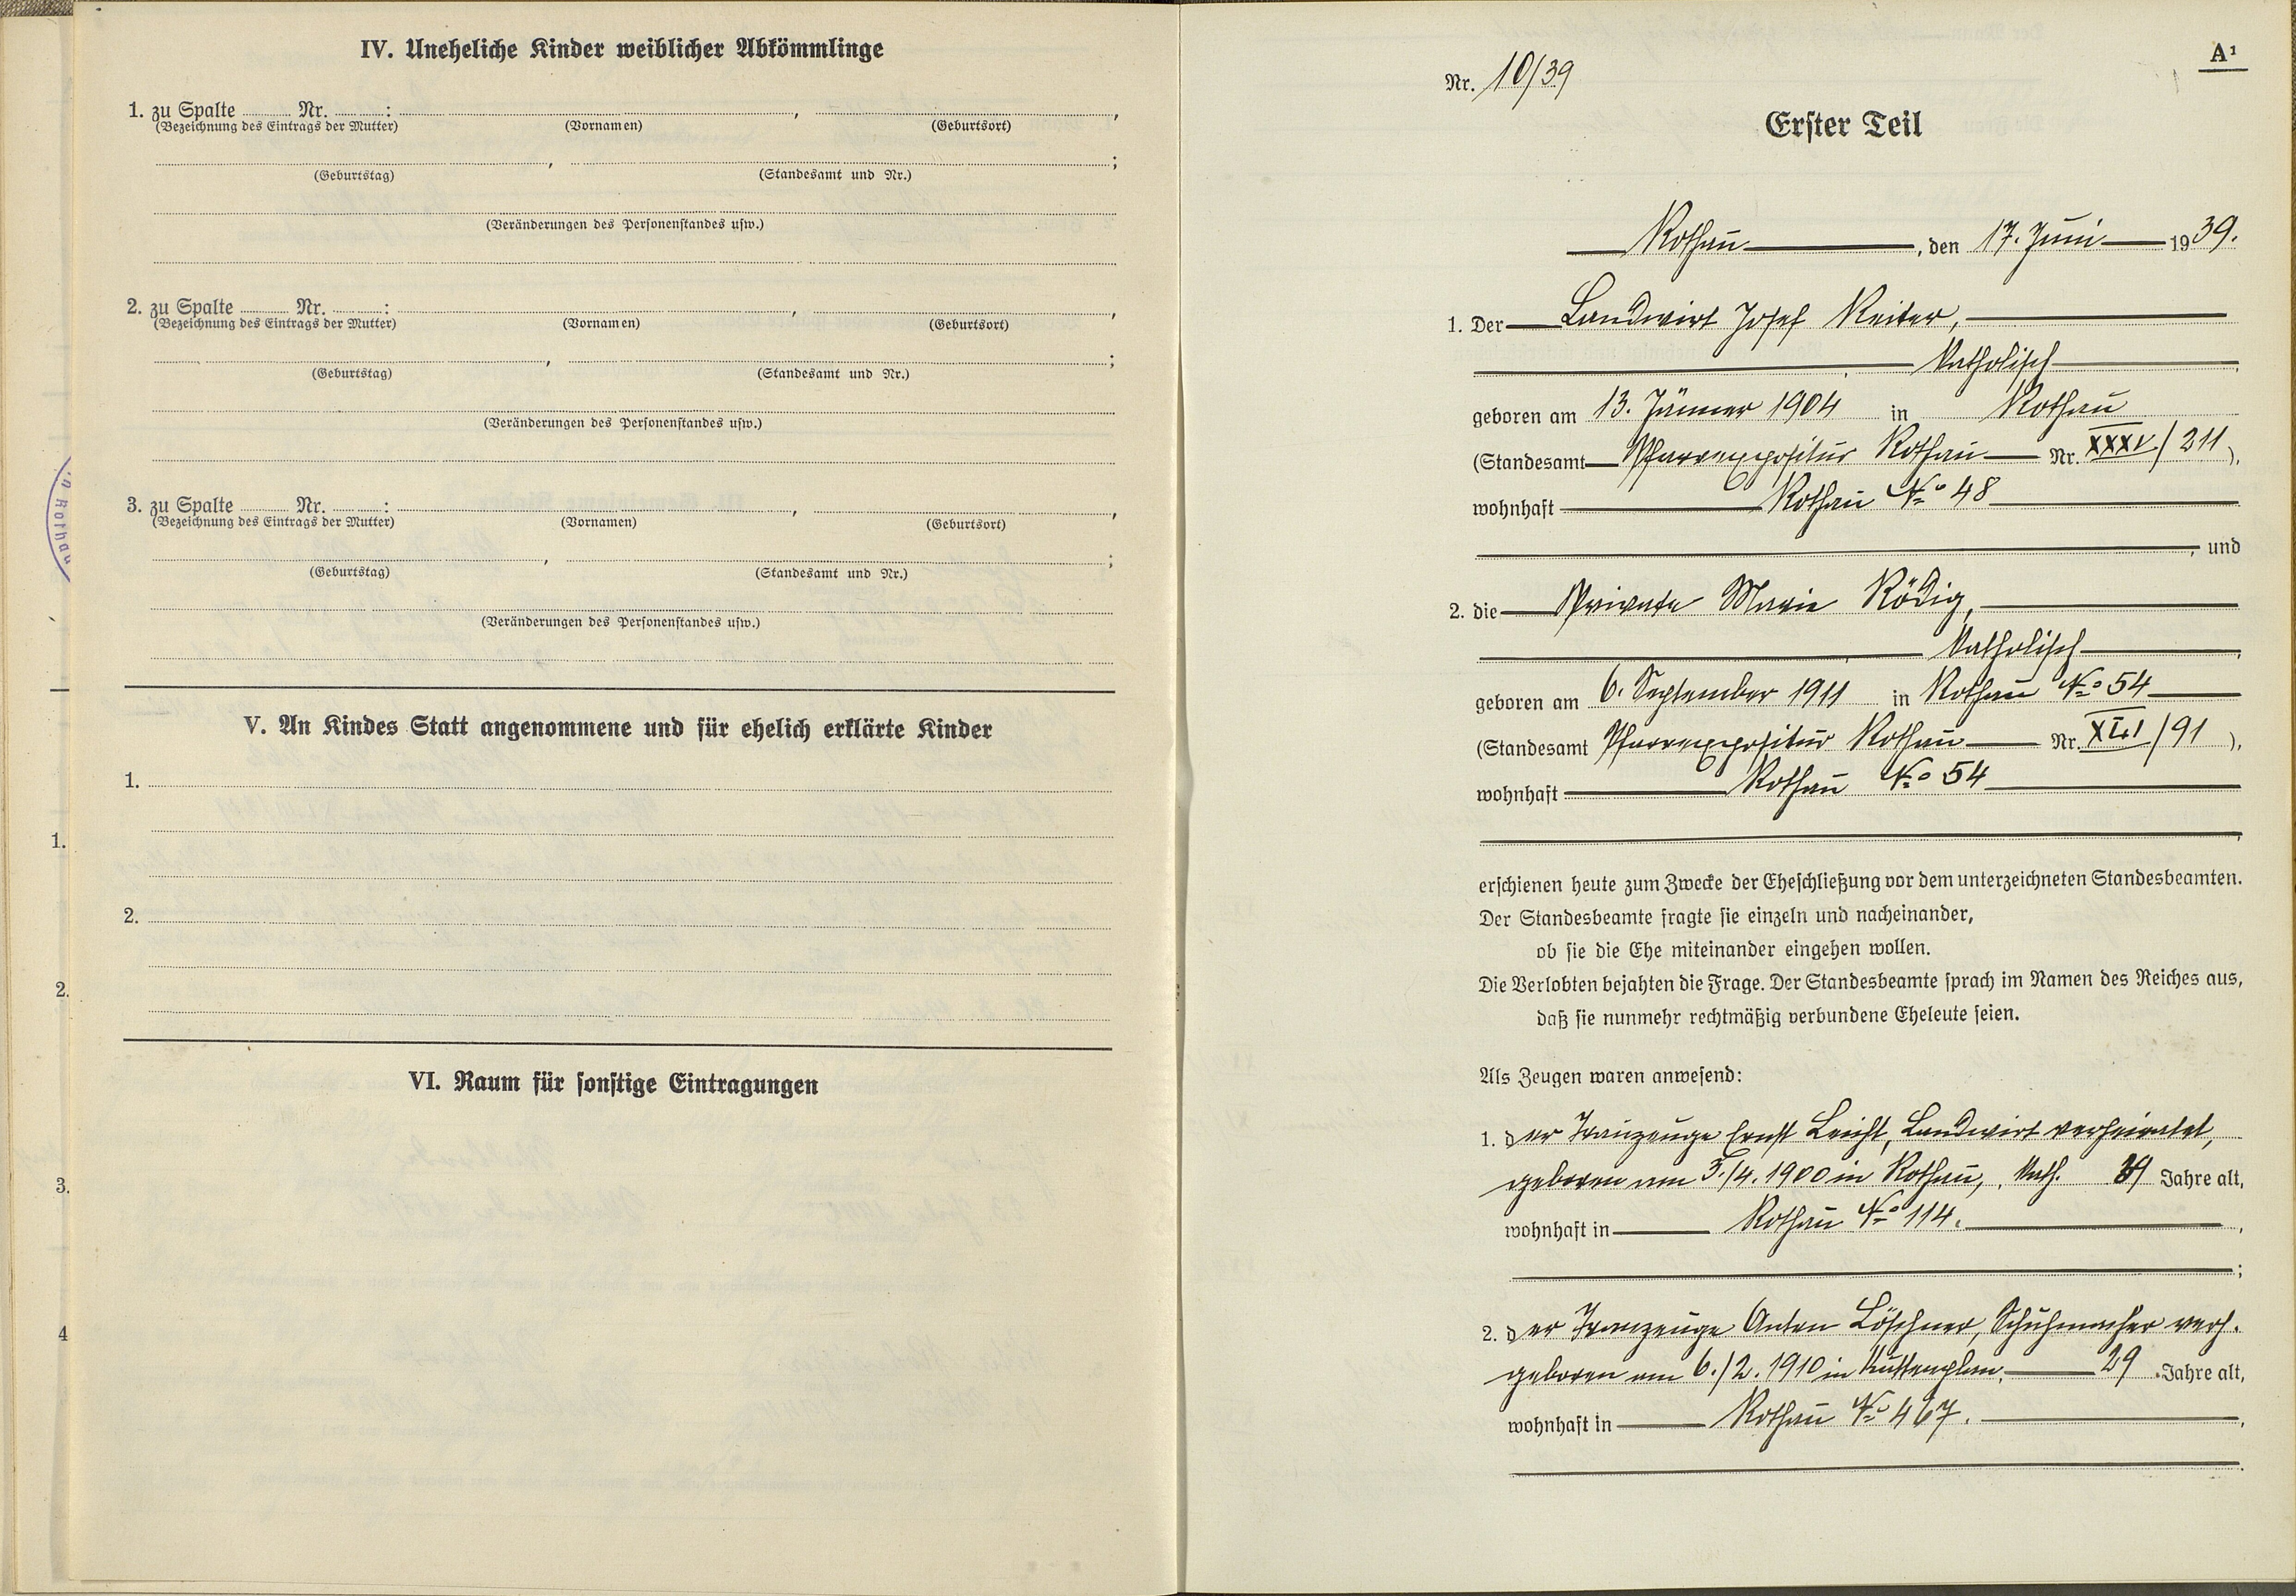 IV. Uneheliche Kinder weiblicher Abkömmlinge
1. zu Spalte ........ Nr. ........: ........, ........,
(Bezeichnung des Eintrags der Mutter) (Vornamen) (Geburtsort)
........, ........;
(Geburtstag) (Standesamt und Nr.)
(Veränderungen des Personenstandes usw.)
2. zu Spalte ........ Nr. ........: ........, ........,
(Bezeichnung des Eintrags der Mutter) (Vornamen) (Geburtsort)
........, ........;
(Geburtstag) (Standesamt und Nr.)
(Veränderungen des Personenstandes usw.)
3. zu Spalte ........ Nr. ........: ........, ........,
(Bezeichnung des Eintrags der Mutter) (Vornamen) (Geburtsort)
........, ........;
(Geburtstag) (Standesamt und Nr.)
(Veränderungen des Personenstandes usw.)
V. An Kindes Statt angenommene und für ehelich erklärte Kinder
1.
2.
VI. Raum für sonstige Eintragungen
in Rothau
1.
2.
3.
4
A¹
Nr. 10/39
Erster Teil
Rothau, den 17. Juni 1939.
1. Der Landwirt Josef Reiter,
katholisch,
geboren am 13. Jänner 1904 in Rothau
(Standesamt Pfarrexpositur Rothau Nr. XXXV/211),
wohnhaft Rothau No 48
, und
2. die Private Marie Rödig,
katholisch,
geboren am 6. September 1911 in Rothau No 54
(Standesamt Pfarrexpositur Rothau Nr. XLI/91),
wohnhaft Rothau No 54
,
erschienen heute zum Zwecke der Eheschließung vor dem unterzeichneten Standesbeamten.
Der Standesbeamte fragte sie einzeln und nacheinander,
ob sie die Ehe miteinander eingehen wollen.
Die Verlobten bejahten die Frage. Der Standesbeamte sprach im Namen des Reiches aus,
daß sie nunmehr rechtmäßig verbundene Eheleute seien.
Als Zeugen waren anwesend:
1. der Trauzeuge Ernst Leicht, Landwirt verheiratet,
geboren am 5./4. 1900 in Rothau, kath. 39 Jahre alt,
wohnhaft in Rothau No 114.,
;
2. der Trauzeuge Anton Löschner, Schuhmacher verh.
geboren am 6./2. 1910 in Kuttenplan, 29 Jahre alt,
wohnhaft in Rothau No 467.,
.